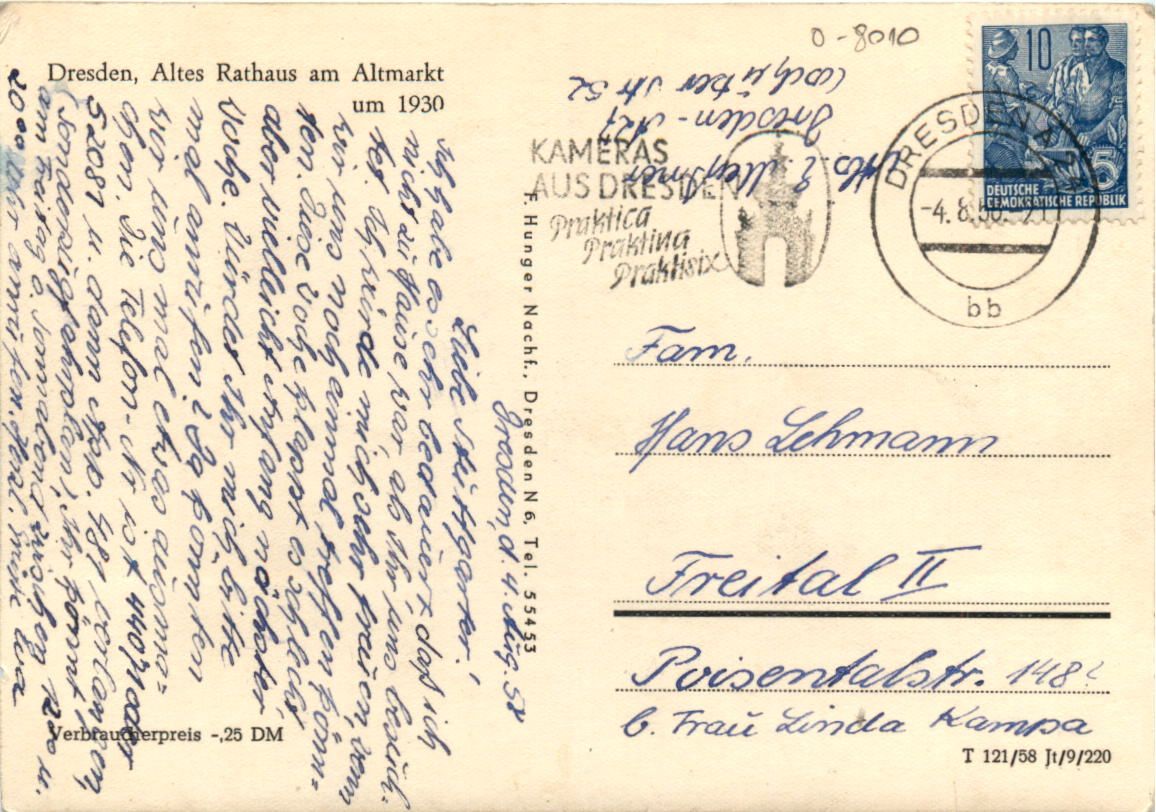 O-8010
Dresden, Altes Rathaus am Altmarkt
um 1930
10
5
DEUTSCHE
DEMOKRATISCHE REPUBLIK
DRESDEN A
-4.8.58.
bb
KAMERAS
AUS DRESDEN
Praktica
Praktina
Praktisix
Dresden - A 27
Str 52
Fam.
Hans Lehmann
Freital II
Poisentalstr. 148
b. Frau Linda Kampa
T 121/58 Jt/9/220
F. Hunger Nachf., Dresden N 6, Tel. 55453
Dresden, d. 4. Aug. 58
Liebe Stuttgarter!
Ich habe es sehr bedauert, daß ich
nicht zu Hause war, als Ihr uns besuch-
tet. Ich würde mich sehr freuen, wenn
wir uns noch einmal treffen könn-
ten. Diese Woche klappt es schlecht,
aber vielleicht Anfang nächster
Woche. Würdet Ihr mich bitte
mal anrufen? Da könnten
wir uns mal etwas ausma-
chen. Die Telefon-Nr ist 44071 oder
52081 u. dann App. 481 verlangen,
Ihr könnt
am Freitag o. Sonnabend zwischen 12 00 u.
2000 Uhr anrufen.
Verbraucherpreis -,25 DM